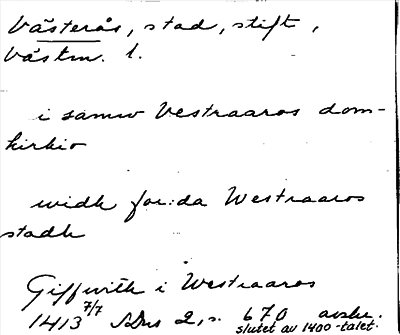 Västerås, stad, stift,
Västm. l.
i samw Vestraaros dom-
kirkio
widh for:da Westraaros
stadh
Giffwith i Westraaros
1413 7/7 SDns 2, s. 670 avskr.
slutet av 1400-talet.